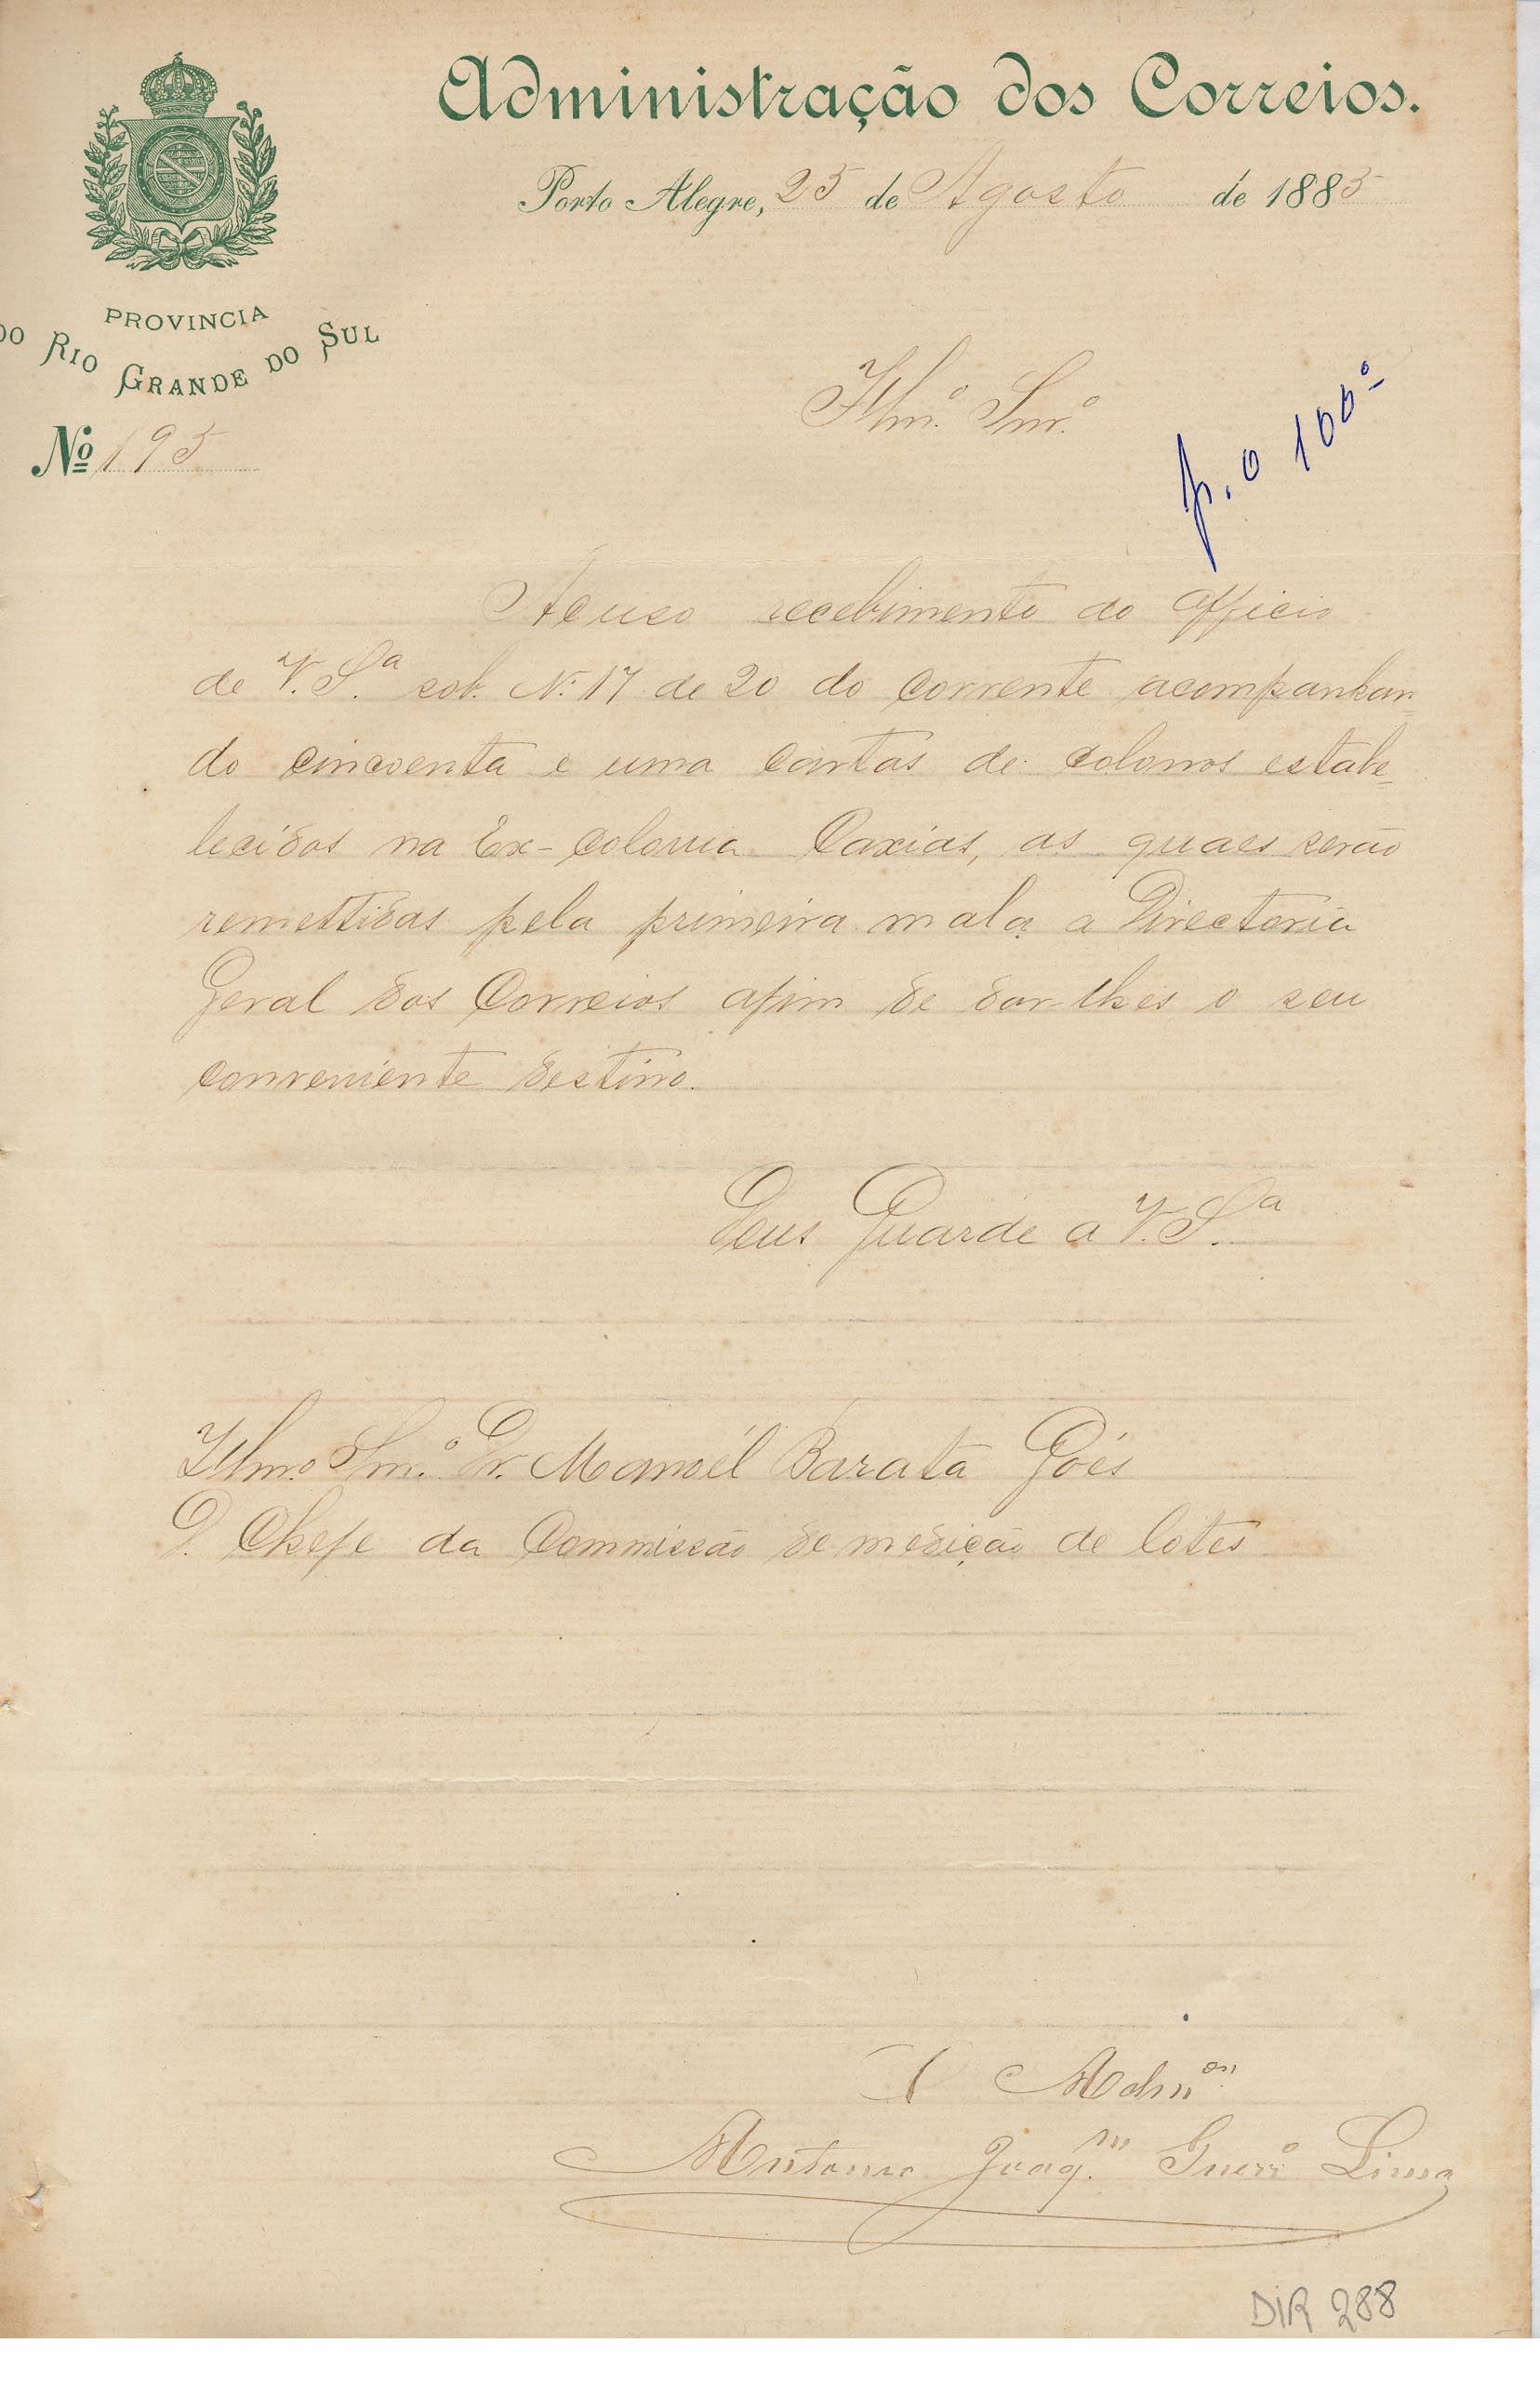 Administração dos Correios.
Porto Alegre, 25 de Agosto de 1885
PROVINCIA
DO RIO GRANDE DO SUL
Nº 195
Illmº Snrº
p. o 100º
Acuso recebimento do officio
de V. Sª sob Nº 17 de 20 do corrente acompanhan=
do cincoenta e uma cartas de colonos estabe=
lecidos na Ex-colonia Caxias, as quaes serão
remettidas pela primeira mala a Directoria
Geral dos Correios afim de dar-lhes o seu
conveniente destino.
Deus Guarde a V. Sª
Illmo Snrº Dr. Manoél Barata Góes
D. Chefe da Commissão de medição de lotes
O Admor
Antonio Joaqm Guerrº Lima
DIR 288